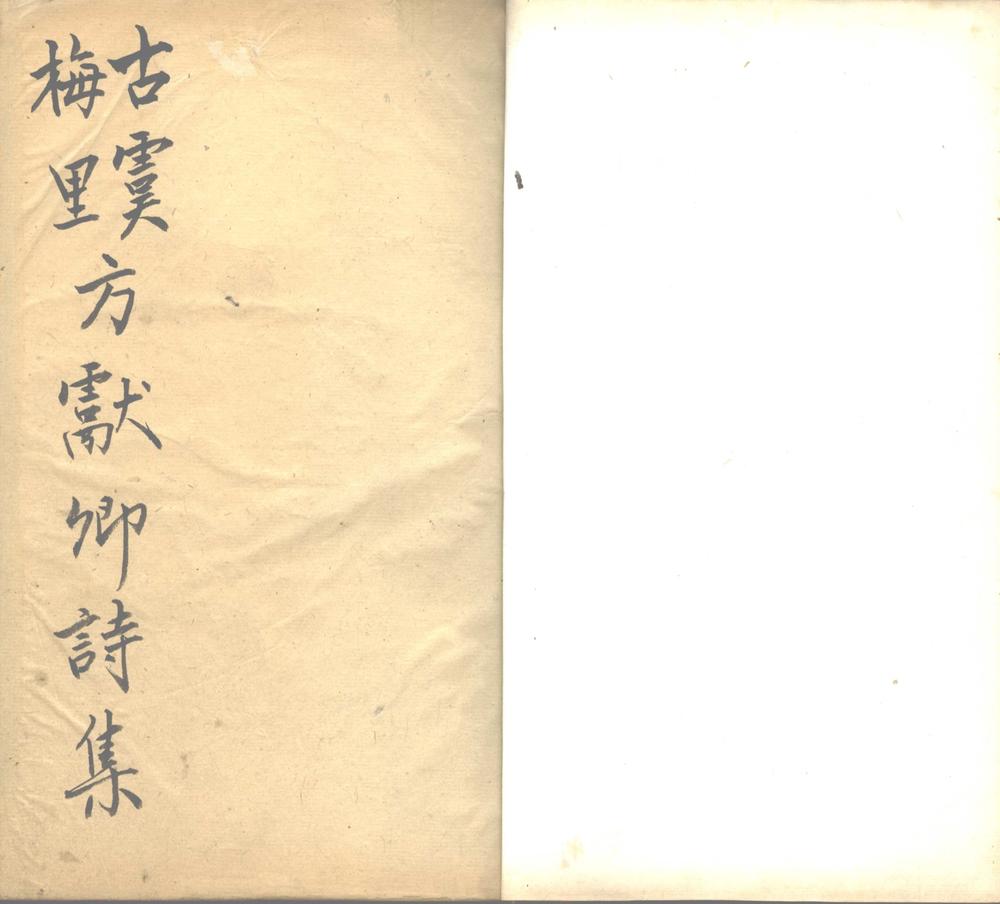 古虞
梅里
方獻卿詩集